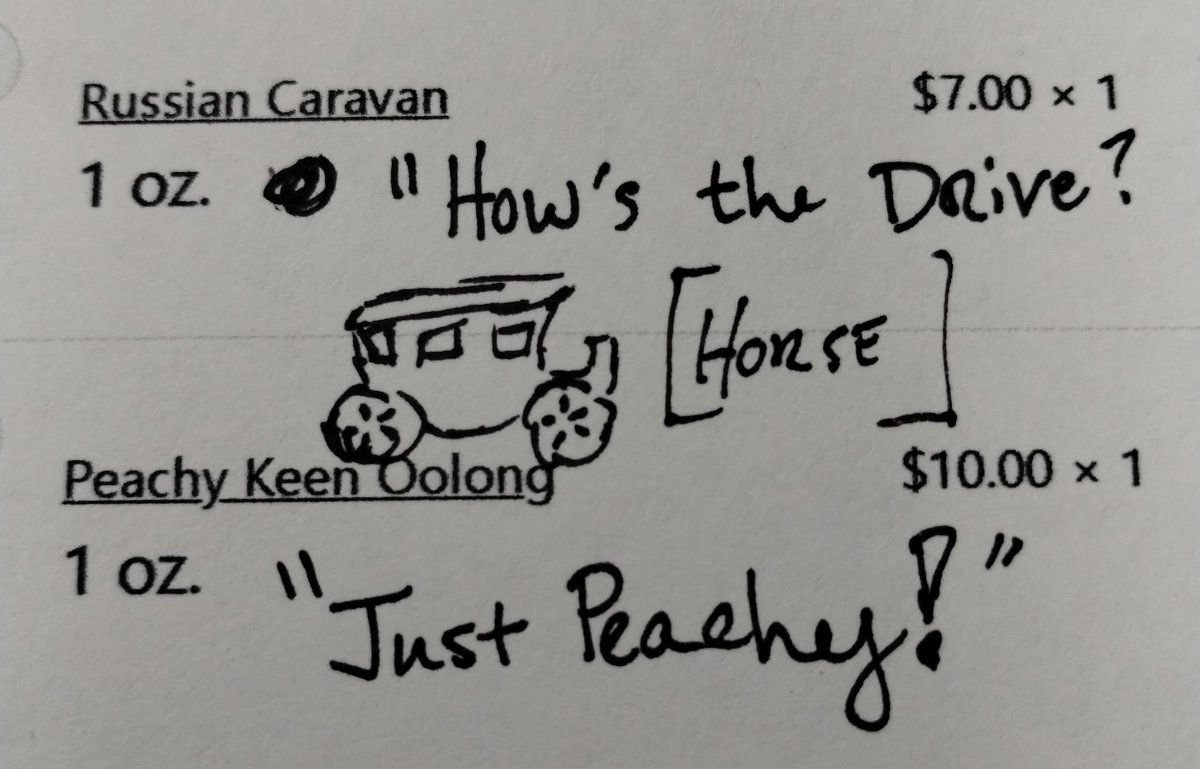 Russian Caravan $7.00 × 1
1 oz. "How's the Drive?
[HORSE]
Peachy Keen Oolong $10.00 × 1
1 oz. "Just Peachy!"